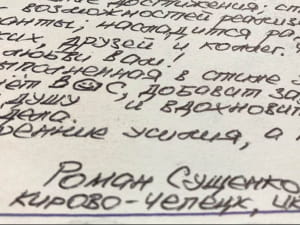 достижения, ст
возможностей реализ
анты; насладится ра
ких друзей и коллег.
любви Вам!
выполненная в стиле
добавит за
душу и вдохновит
дела.
усилия, а
Роман Сущенко
Кирово-Чепецк, ИК